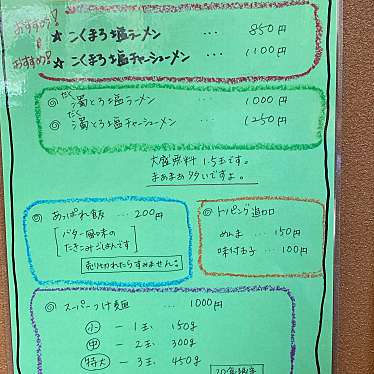 おすすめ! ☆ こくまろ塩ラーメン … 850円
おすすめ! ☆ こくまろ塩チャーシューメン … 1100円
◎ 濁とろ塩ラーメン … 1000円
だく
◎ 濁とろ塩チャーシューメン … 1250円
だく
大盛無料 1.5玉です。
まあまあ多いですよ。
◎ あっぱれ飯 … 200円
[バター風味の
たきこみごはんです]
売り切れたらすみません。
◎ トッピング追加
めんま … 150円
味付玉子 … 100円
◎ スーパーつけ麺 … 1000円
小 ー 1玉 150g
中 ー 2玉 300g
特大 ー 3玉 450g
20食限定